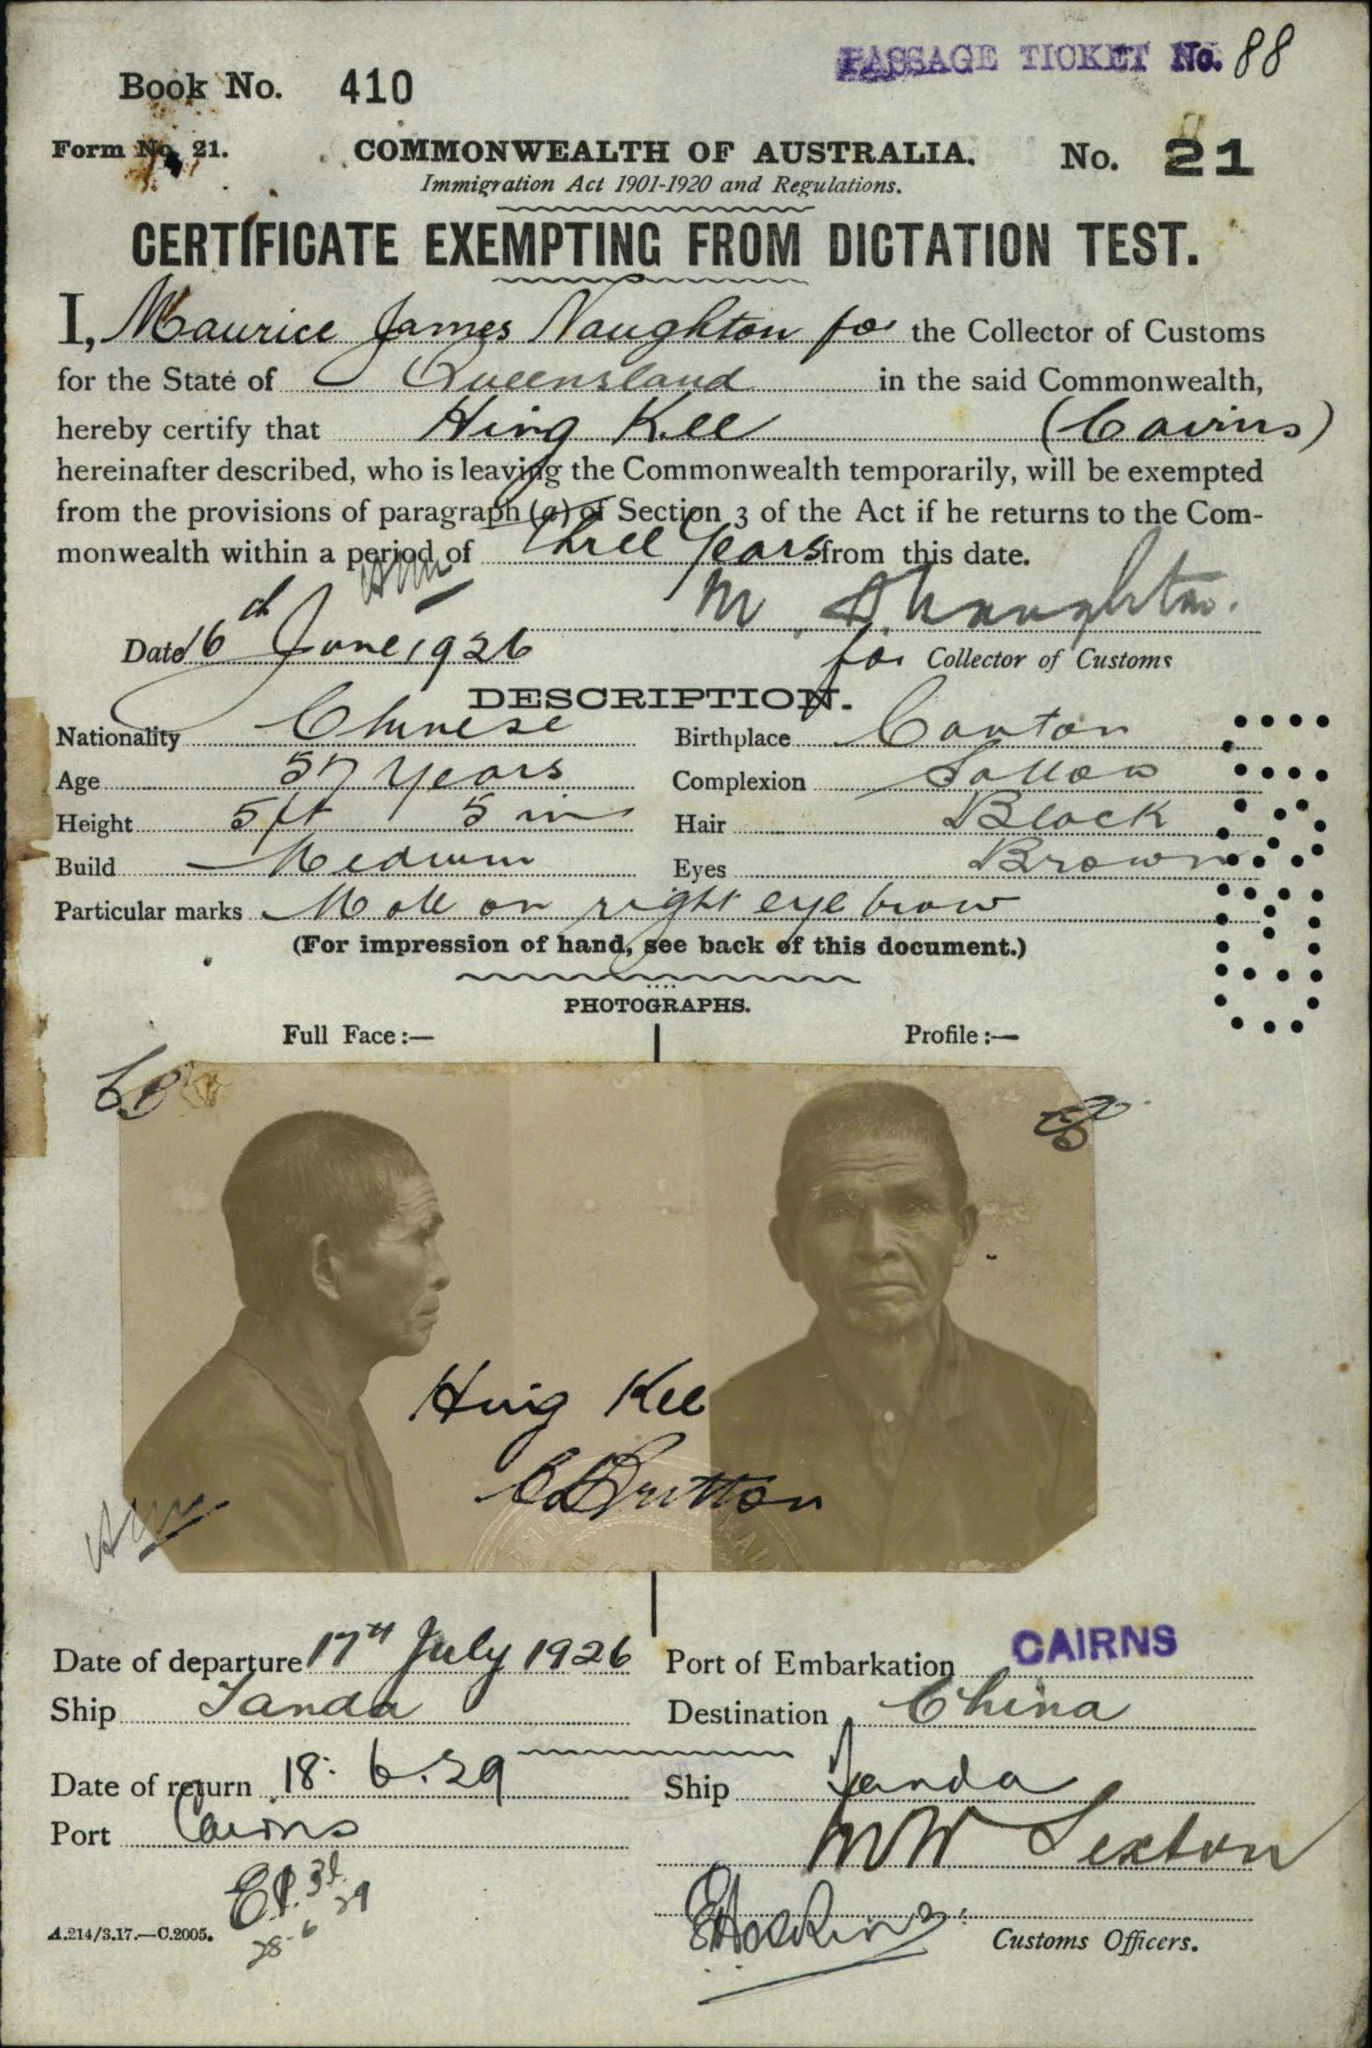 PASSAGE TICKET No. 88
Book No. 410
Form No. 21.
COMMONWEALTH OF AUSTRALIA.
No. 21
Immigration Act 1901-1920 and Regulations.
CERTIFICATE EXEMPTING FROM DICTATION TEST.
I, Maurice James Naughton for the Collector of Customs
for the State of Queensland in the said Commonwealth,
hereby certify that Hing Kee (Cairns)
hereinafter described, who is leaving the Commonwealth temporarily, will be exempted
from the provisions of paragraph (a) of Section 3 of the Act if he returns to the Com-
monwealth within a period of three years from this date.
M. J. Naughton.
Date 16th June 1926
for Collector of Customs
DESCRIPTION.
Nationality Chinese Birthplace Canton
Age 57 years Complexion Sallow
Height 5 ft 5 in Hair Black
Build Medium Eyes Brown
Particular marks Mole on right eye brow
(For impression of hand, see back of this document.)
PHOTOGRAPHS.
Full Face:— Profile:—
Hing Kee
Date of departure 17th July 1926 Port of Embarkation CAIRNS
Ship Tanda Destination China
Date of return 18. 6. 29 Ship Tanda
Port Cairns
WW Sexton
Customs Officers.
A.214/3.17.—C.2005.